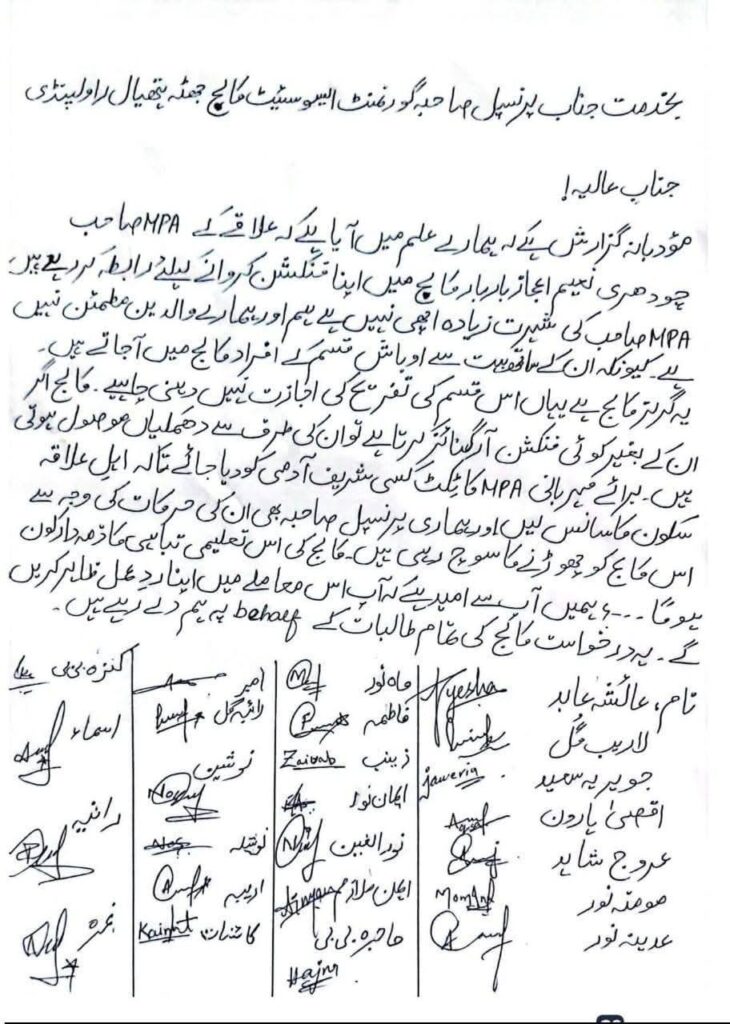 بخدمت جناب پرنسپل صاحبہ گورنمنٹ ایسوسئیٹ کالج جھٹہ ہتھیال راولپنڈی
جنابِ عالیہ!
مؤدبانہ گزارش ہے کہ ہمارے علم میں آیا ہے کہ علاقے کے MPA صاحب
چودھری نعیم اعجاز بار بار کالج میں اپنا فنکشن کروانے کیلئے رابطہ کر رہے ہیں
MPA صاحب کی شہرت زیادہ اچھی نہیں ہے ہم اور ہمارے والدین مطمئن نہیں
ہے۔ کیونکہ ان کے ساتھ بہت سے اوباش قسم کے افراد کالج میں آجاتے ہیں۔
یہ گرلز کالج ہے یہاں اس قسم کی تفریح کی اجازت نہیں دینی چاہیے۔ کالج اگر
ان کے بغیر کوئی فنکشن آرگنائز کرتا ہے تو ان کی طرف سے دھمکیاں موصول ہوتی
ہیں۔ برائے مہربانی MPA کا ٹکٹ کسی شریف آدمی کو دیا جائے تاکہ اہلِ علاقہ
سکون کا سانس لیں اور ہماری پرنسپل صاحبہ بھی ان کی حرکات کی وجہ سے
اس کالج کو چھوڑنے کا سوچ رہی ہیں۔ کالج کی اس تعلیمی تباہی کا ذمہ دار کون
ہوگا ۔۔۔؟ ہمیں آپ سے امید ہے کہ آپ اس معاملے میں اپنا ردِ عمل ظاہر کریں
گے۔ یہ درخواست کالج کی تمام طالبات کے behalf پہ ہم دے رہے ہیں۔
نام، عائشہ عابد Ayesha
لاریب گُل
جویریہ سعید Jaweria
اقصیٰ ہارون
عروج شاہد
مومنہ نور Momna
عدینہ نور
ماہ نور
فاطمہ
زینب Zainab
ایمان نور
نورالعین
ایمن ملازم
حاجرہ بی بی Hajra
امبر
رائبہ گل
نوشین
نوشہ
اریبہ
کائنات Kainat
کنزہ بی بی
اسماء
رانیہ
نمرہ